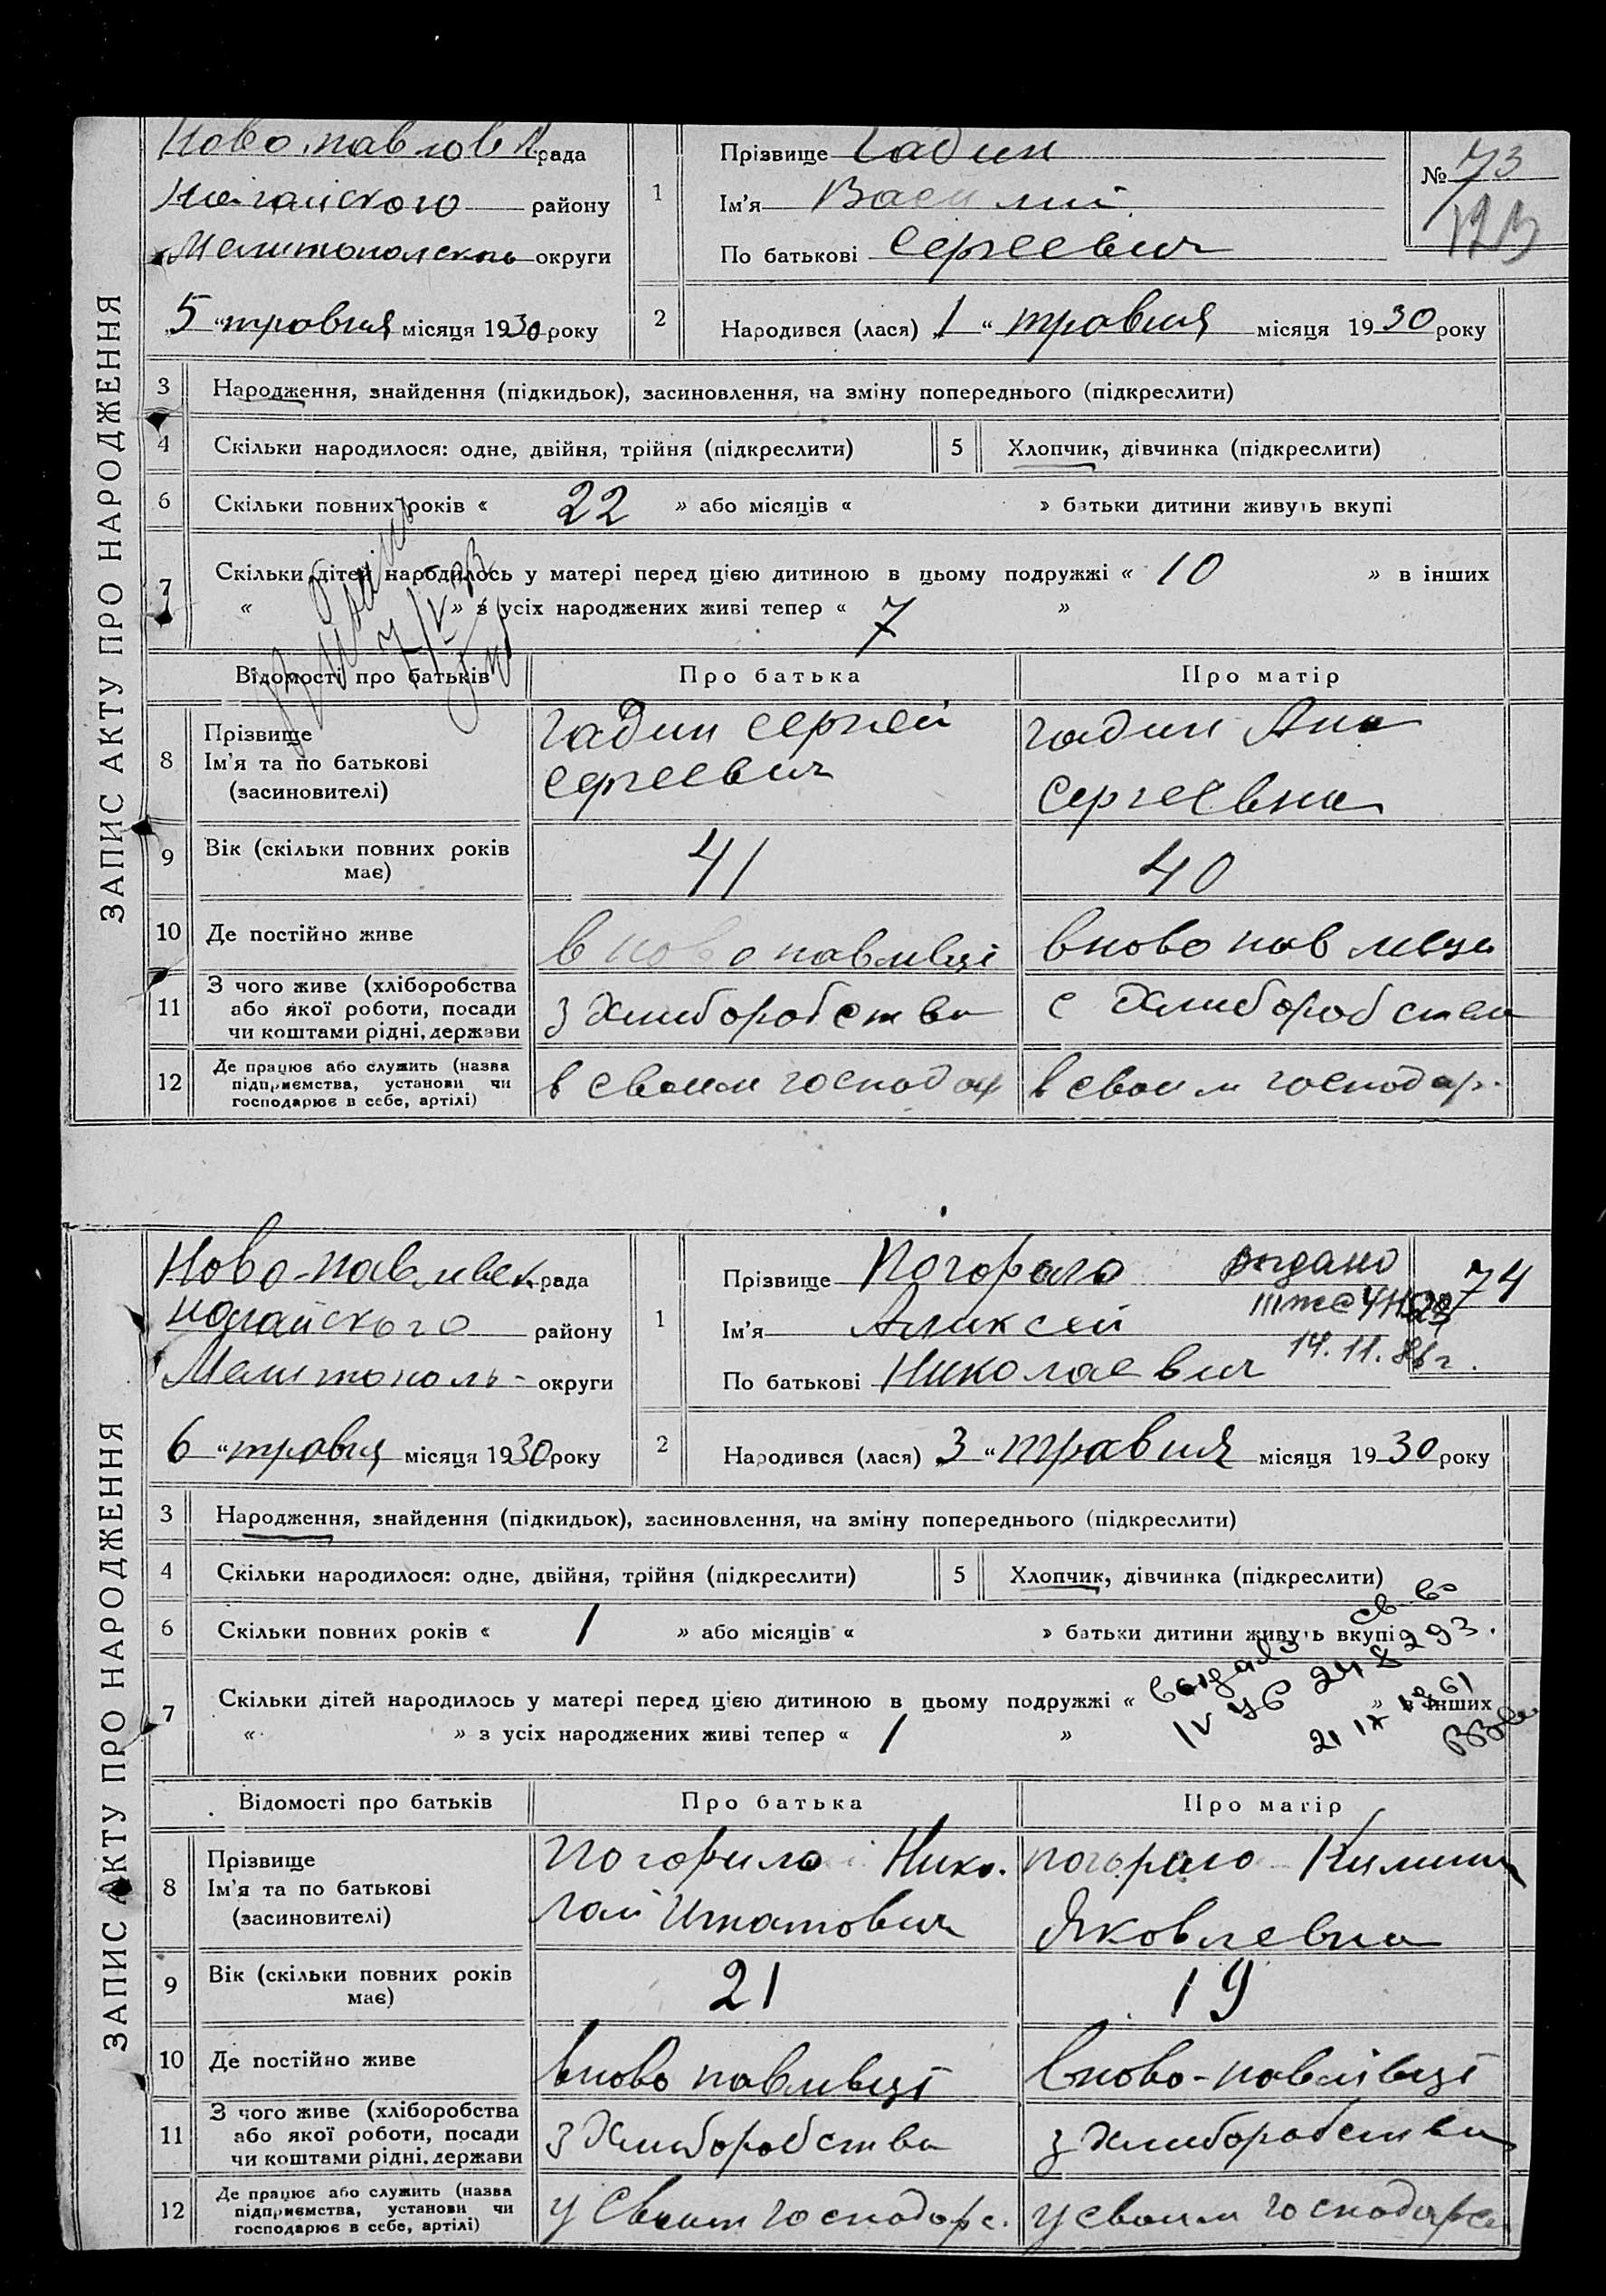 ЗАПИС АКТУ ПРО НАРОДЖЕННЯ
рада
району
округи
5 " травня місяця 1930 року
1
Прізвище Гадин
Ім'я Василий
По батькові Сергеевич
№ 73
2
Народився (лася) „ 1 " травня місяця 1930 року
3 Народження, знайдення (підкидьок), засиновлення, на зміну попереднього (підкреслити)
4 Скільки народилося: одне, двійня, трійня (підкреслити)
5 Хлопчик, дівчинка (підкреслити)
6 Скільки повних років « 22 » або місяців « » батьки дитини живуть вкупі
7 Скільки дітей народилось у матері перед цією дитиною в цьому подружжі « 10 » в інших
« » з усіх народжених живі тепер « 7 »
Відомості про батьків
Про батька
Про матір
8 Прізвище
Ім'я та по батькові
(засиновителі)
Гадин Сергей
Сергеевич
Гадин Ана
Сергеевна
9 Вік (скільки повних років
має)
41
40
10 Де постійно живе
в ново павливці
в ново пав
11 З чого живе (хліборобства
або якої роботи, посади
чи коштами рідні, держави
з Хлиборобства
с Хлиборобства
12 Де працює або служить (назва
підприємства, установи чи
господарює в себе, артілі)
в своим господар
в своим господар.
ЗАПИС АКТУ ПРО НАРОДЖЕННЯ
Ново-павливск. рада
ногайского району
Мелитополь- округи
6 " травня місяця 1930 року
1
Прізвище Погорело
Ім'я Аликсей
По батькові Николаевич
выдано
14.11.
74
2
Народився (лася) „ 3 " травня місяця 1930 року
3 Народження, знайдення (підкидьок), засиновлення, на зміну попереднього (підкреслити)
4 Скільки народилося: одне, двійня, трійня (підкреслити)
5 Хлопчик, дівчинка (підкреслити)
6 Скільки повних років « 1 » або місяців « » батьки дитини живуть вкупі
7 Скільки дітей народилось у матері перед цією дитиною в цьому подружжі « » в інших
« » з усіх народжених живі тепер « 1 »
св-во
выдано
IV УБ 248293.
21 IX 1961
Відомості про батьків
Про батька
Про матір
8 Прізвище
Ім'я та по батькові
(засиновителі)
Погорило Нико-
лай
погорело
Яковлевна
9 Вік (скільки повних років
має)
21
19
10 Де постійно живе
в ново павливці
в ново-павлівці
11 З чого живе (хліборобства
або якої роботи, посади
чи коштами рідні, держави
з Хлиборобства
з Хлиборобства
12 Де працює або служить (назва
підприємства, установи чи
господарює в себе, артілі)
у Своим господарс.
у своим господарс